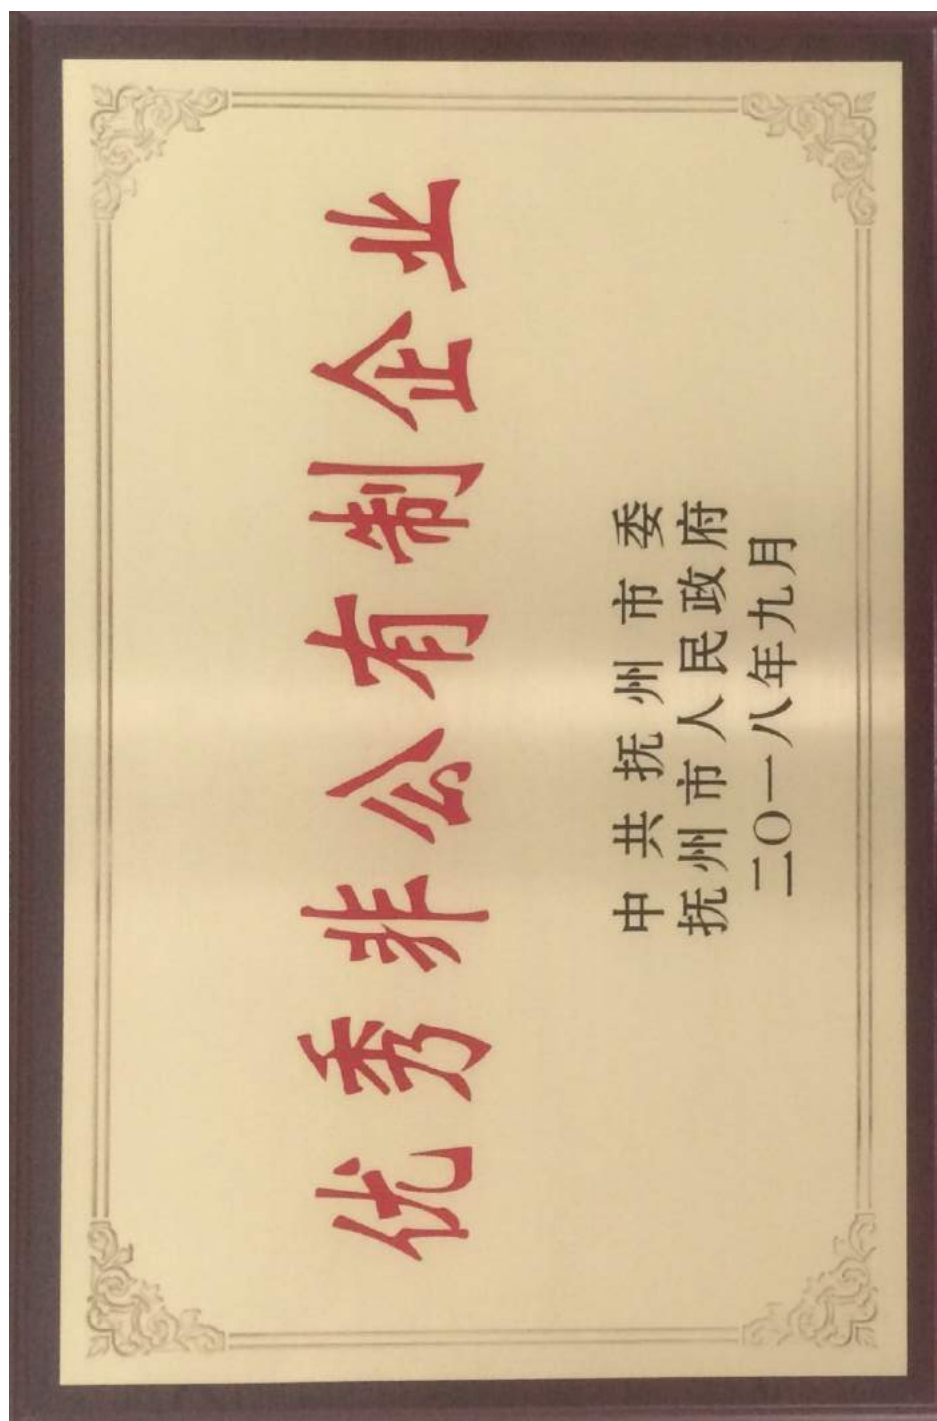 优秀非公有制企业
中共抚州市委
抚州市人民政府
二〇一八年九月